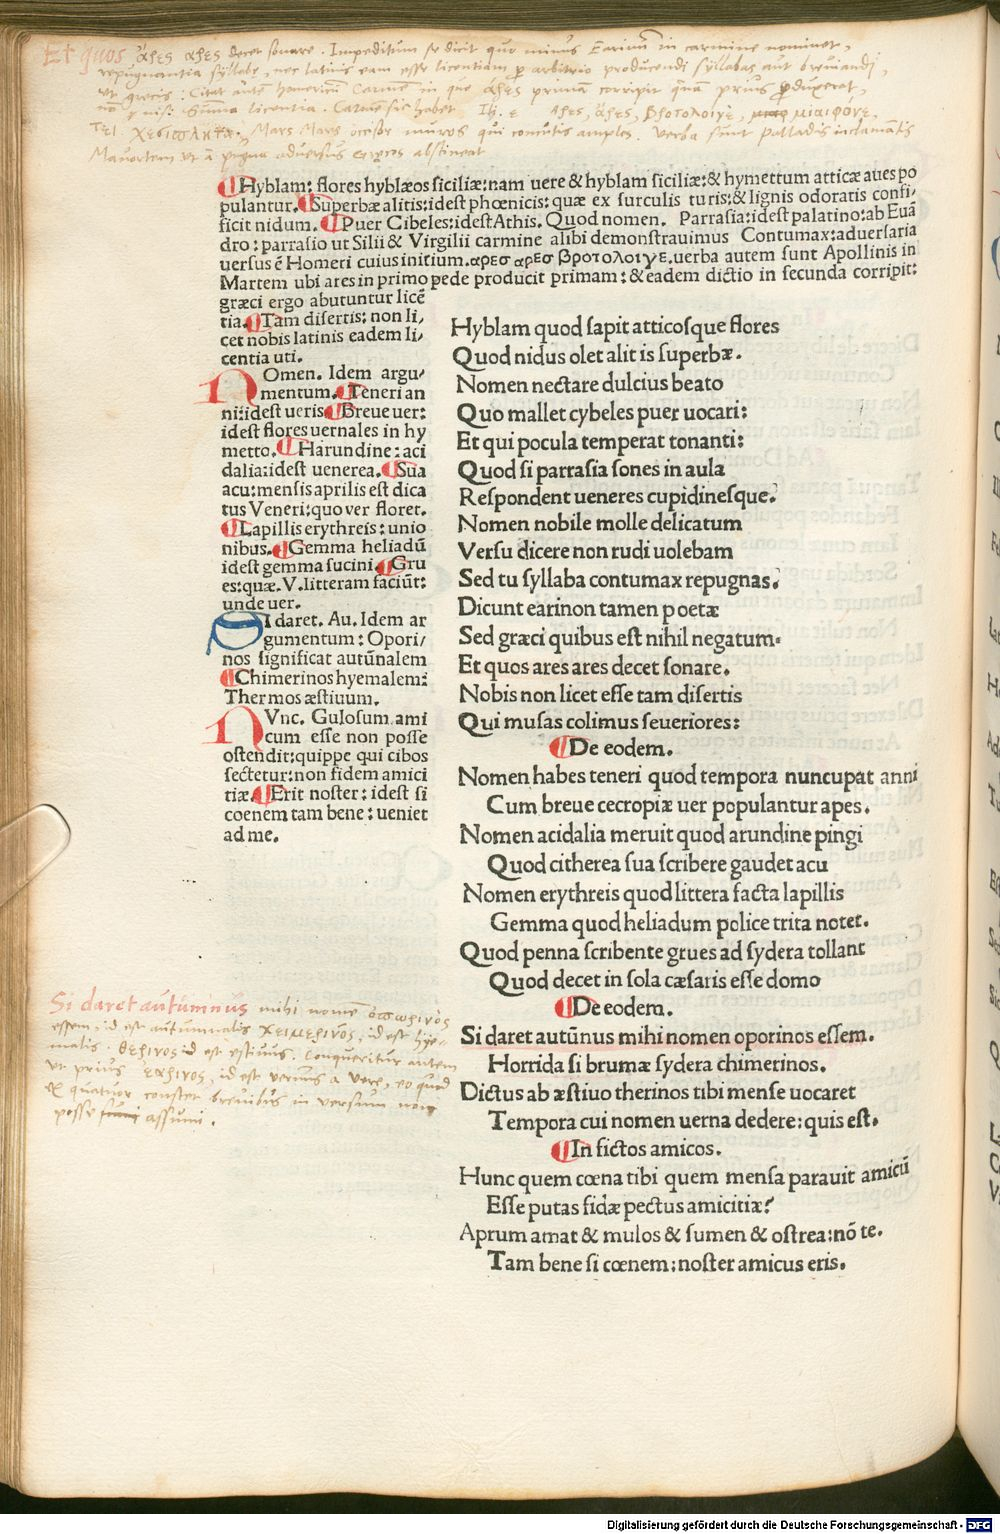 Et quos ἄρες ἀρες decet sonare. Impeditum se dicit quo minus Earinū in carmine nominet,
repugnantia syllabe, nec latinis eam esse licentiam ꝓ arbitrio producendi syllabas aut breuiandi,
ut grecis: Citat autē homericū Carmē in quo ἄρες primā corripit quā prius ꝓduxerat,
licentia. Carmē sic habet Il. ε Αρες, ἄρες, βροτολοιγε, μιαιφονε,
τει χεσιπλητα. Mars Mars occisor muros qui concutis amplos. Verba sunt Palladis inclamātis
Mauortem ut a pugna aduersus abstineat
¶Hyblam: flores hyblæos siciliæ: nam uere & hyblam siciliæ: & hymettum atticæ aues po
pulantur. ¶Superbæ alitis: idest phœnicis: quæ ex surculis turis: & lignis odoratis confi,
ficit nidum. ¶Puer Cibeles: idest Athis. Quod nomen. Parrasia: idest palatino: ab Euā
dro: parrasio ut Silii & Virgilii carmine alibi demonstrauimus Contumax: aduersaria
uersus ē Homeri cuius initium. αρεσ αρεσ βροτολοιγε. uerba autem sunt Apollinis in
Martem ubi ares in primo pede producit primam: & eadem dictio in secunda corripit:
græci ergo abutuntur licē
tia. ¶Tam disertis: non li,
cet nobis latinis eadem li,
centia uti.
NOmen. Idem argu,
mentum. ¶Teneri an
ni: idest ueris ¶Breue uer:
idest flores uernales in hy
metto. ¶Harundine: aci
dalia: idest uenerea. ¶Sua
acu: mensis aprilis est dica
tus Veneri: quo ver floret.
¶Lapillis erythreis: unio
nibus. ¶Gemma heliadū
idest gemma sucini. ¶Gru
es: quæ. V. litteram faciūt:
unde uer.
SIdaret. Au. Idem ar
gumentum: Opori,
nos significat autūnalem
¶Chimerinos hyemalem:
Thermos æstiuum.
NVnc. Gulosum ami
cum esse non posse
ostendit: quippe qui cibos
sectetur: non fidem amici
tiæ. ¶Erit noster: idest si
coenem tam bene: ueniet
ad me.
Si daret autumnus mihi nomē ὀπωρινὸς
essem, id est autumnalis χειμερινὸς, id est hye-
malis. θερινος id est estiuus. Conqueritur autem
ut prius εαρινος, id est vernus a vere, eo quod
ex quatuor constet breuibus in versum non
posse assumi.
Hyblam quod sapit atticosque flores
Quod nidus olet alit is superbæ.
Nomen nectare dulcius beato
Quo mallet cybeles puer uocari:
Et qui pocula temperat tonanti:
Quod si parrasia sones in aula
Respondent ueneres cupidinesque.
Nomen nobile molle delicatum
Versu dicere non rudi uolebam
Sed tu syllaba contumax repugnas.
Dicunt earinon tamen poetæ
Sed græci quibus est nihil negatum.
Et quos ares ares decet sonare.
Nobis non licet esse tam disertis
Qui musas colimus seueriores:
¶De eodem.
Nomen habes teneri quod tempora nuncupat anni
Cum breue cecropiæ uer populantur apes.
Nomen acidalia meruit quod arundine pingi
Quod citherea sua scribere gaudet acu
Nomen erythreis quod littera facta lapillis
Gemma quod heliadum police trita notet.
Quod penna scribente grues ad sydera tollant
Quod decet in sola cæsaris esse domo
¶De eodem.
Si daret autūnus mihi nomen oporinos essem.
Horrida si brumæ sydera chimerinos.
Dictus ab æstiuo therinos tibi mense uocaret
Tempora cui nomen uerna dedere: quis est.
¶In fictos amicos.
Hunc quem cœna tibi quem mensa parauit amicū
Esse putas fidæ pectus amicitiæ?
Aprum amat & mulos & sumen & ostrea: nō te.
Tam bene si cœnem; noster amicus eris.
Digitalisierung gefördert durch die Deutsche Forschungsgemeinschaft - DFG